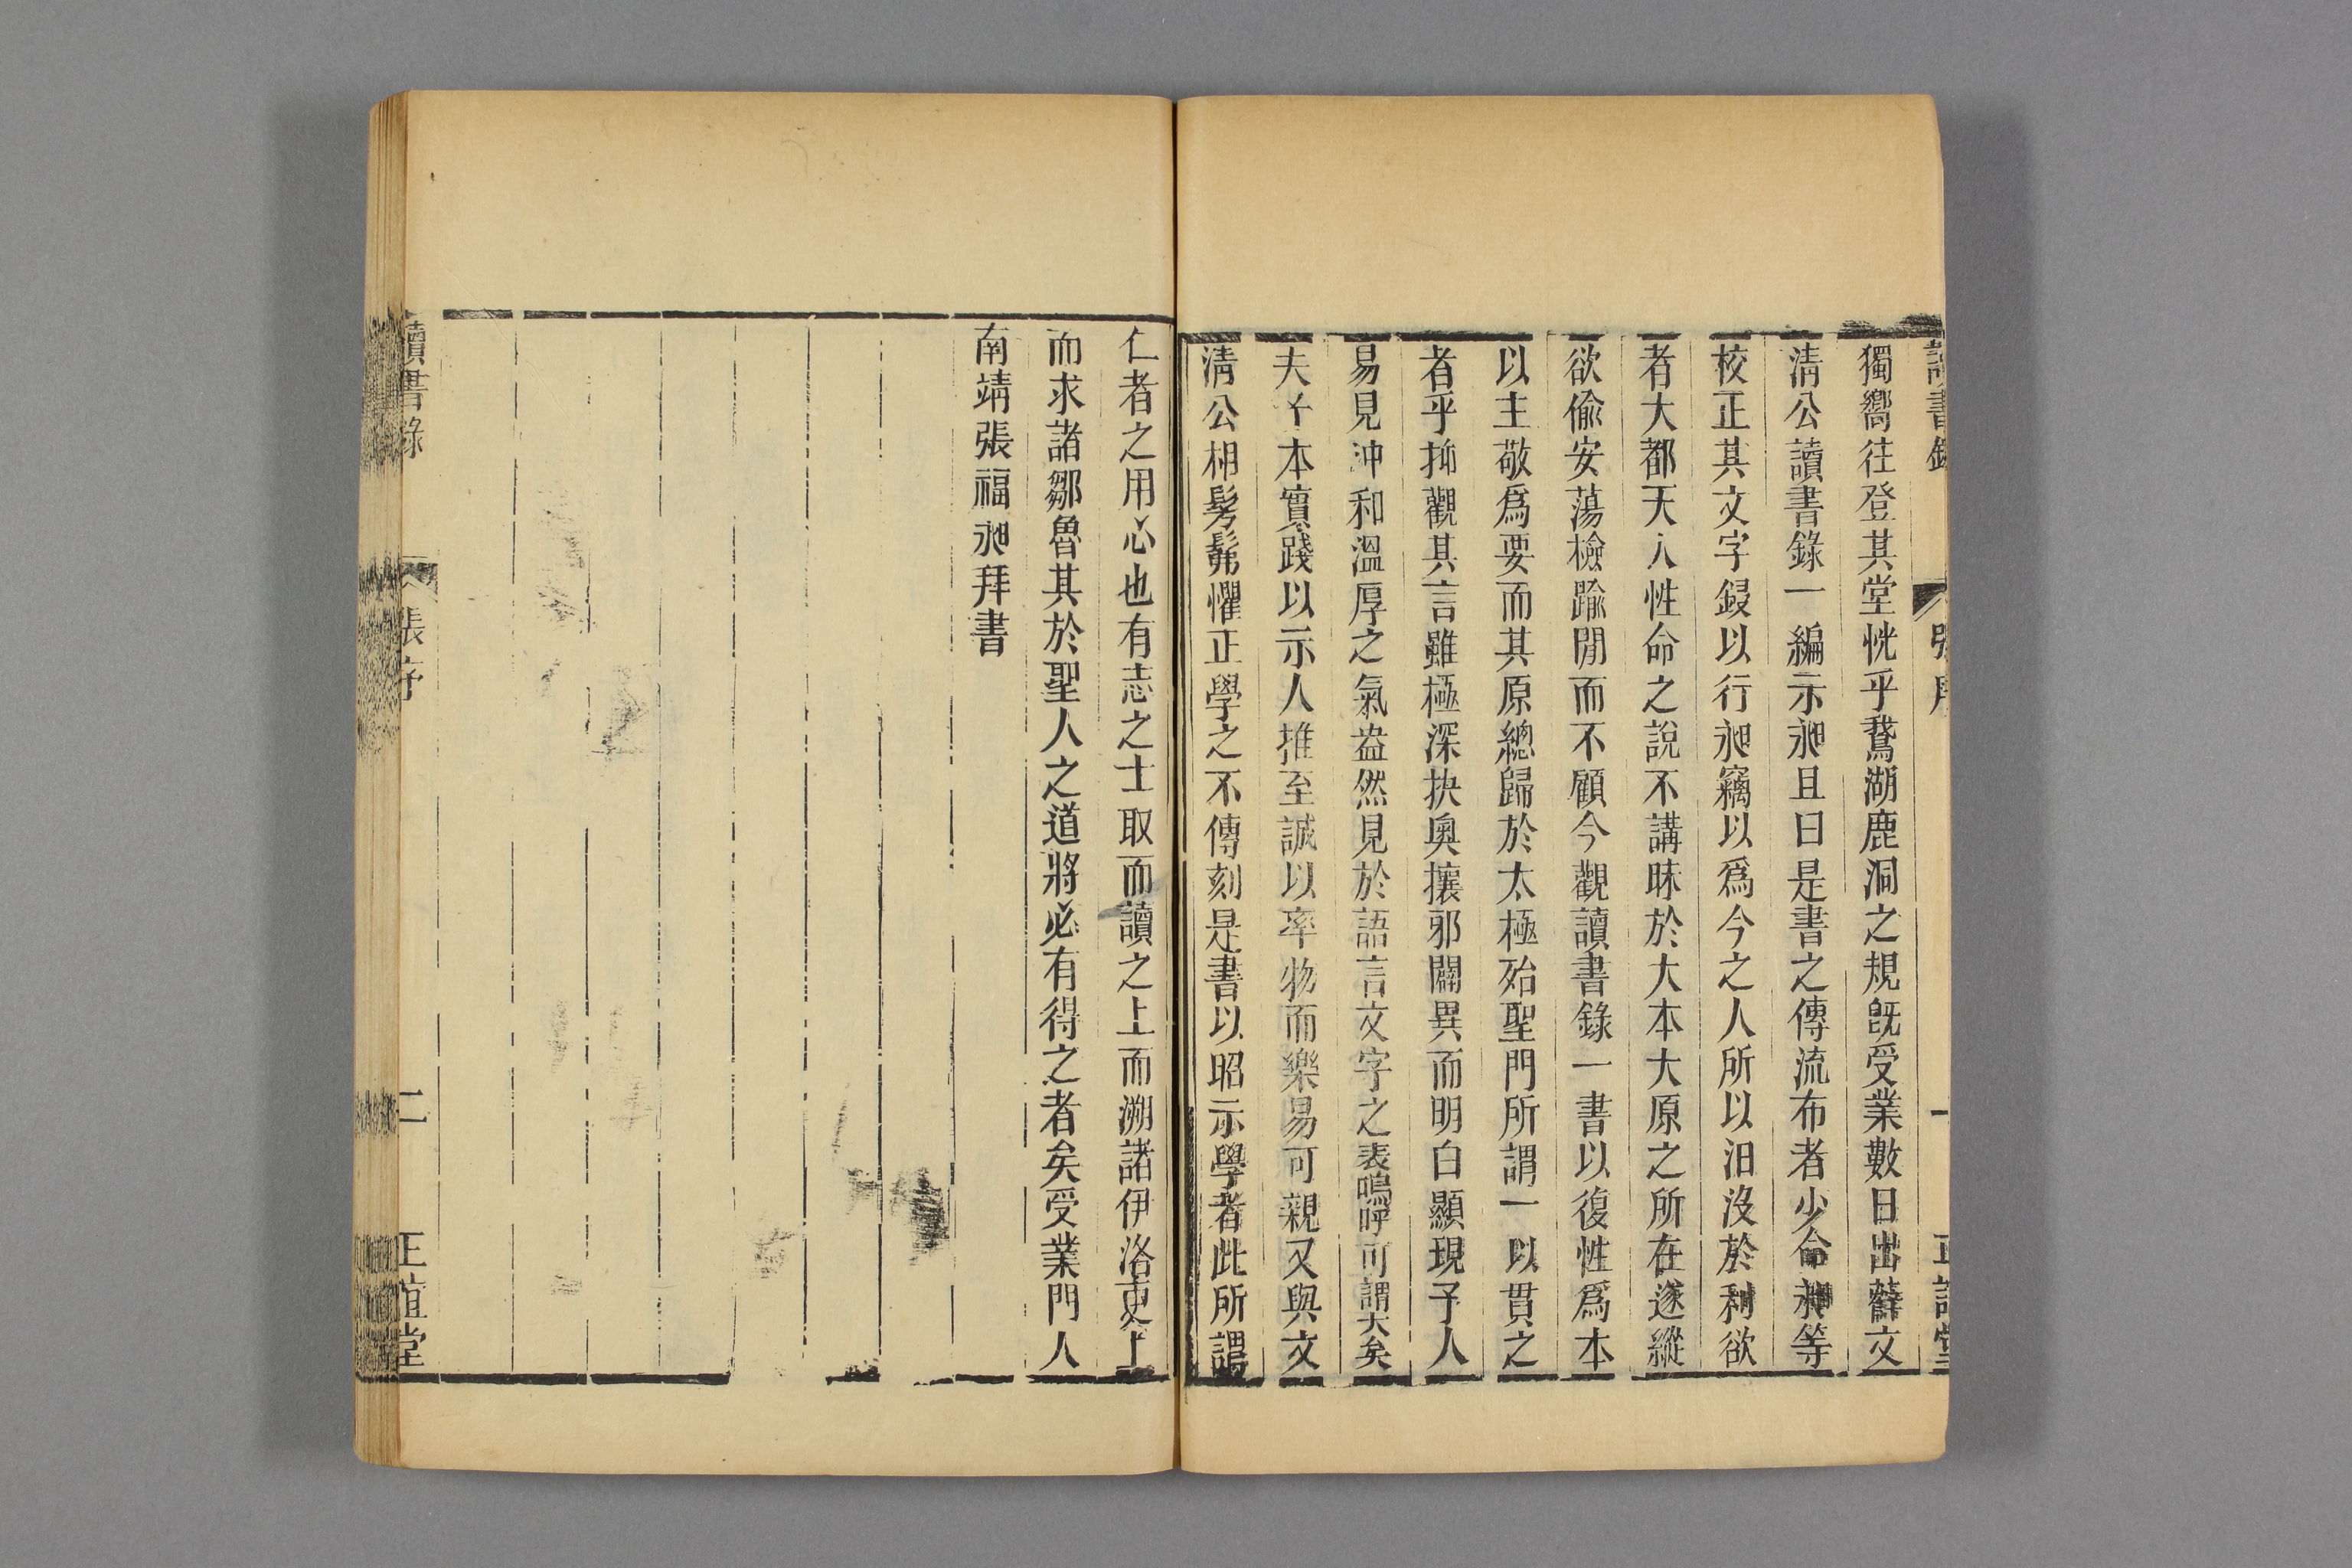 讀書錄 張序 一 正誼堂
獨嚮往登其堂恍乎鵞湖鹿洞之規旣受業數日出薛文
清公讀書錄一編示昶且曰是書之傳流布者少命昶等
校正其文字鋟以行昶竊以爲今之人所以汨沒於利欲
者大都天人性命之說不講昧於大本大原之所在遂縱
欲偷安蕩檢踰閒而不顧今觀讀書錄一書以復性爲本
以主敬爲要而其原總歸於太極殆聖門所謂一以貫之
者乎抑觀其言雖極深抉奥攘邪闢異而明白顯現予人
易見沖和溫厚之氣盎然見於語言文字之表嗚呼可謂大矣
夫子本實踐以示人推至誠以率物而樂易可親又與文
清公相髣髴懼正學之不傳刻是書以昭示學者此所謂
仁者之用心也有志之士取而讀之上而溯諸伊洛更上
而求諸鄒魯其於聖人之道將必有得之者矣受業門人
南靖張福昶拜書
讀書錄 張序 二 正誼堂